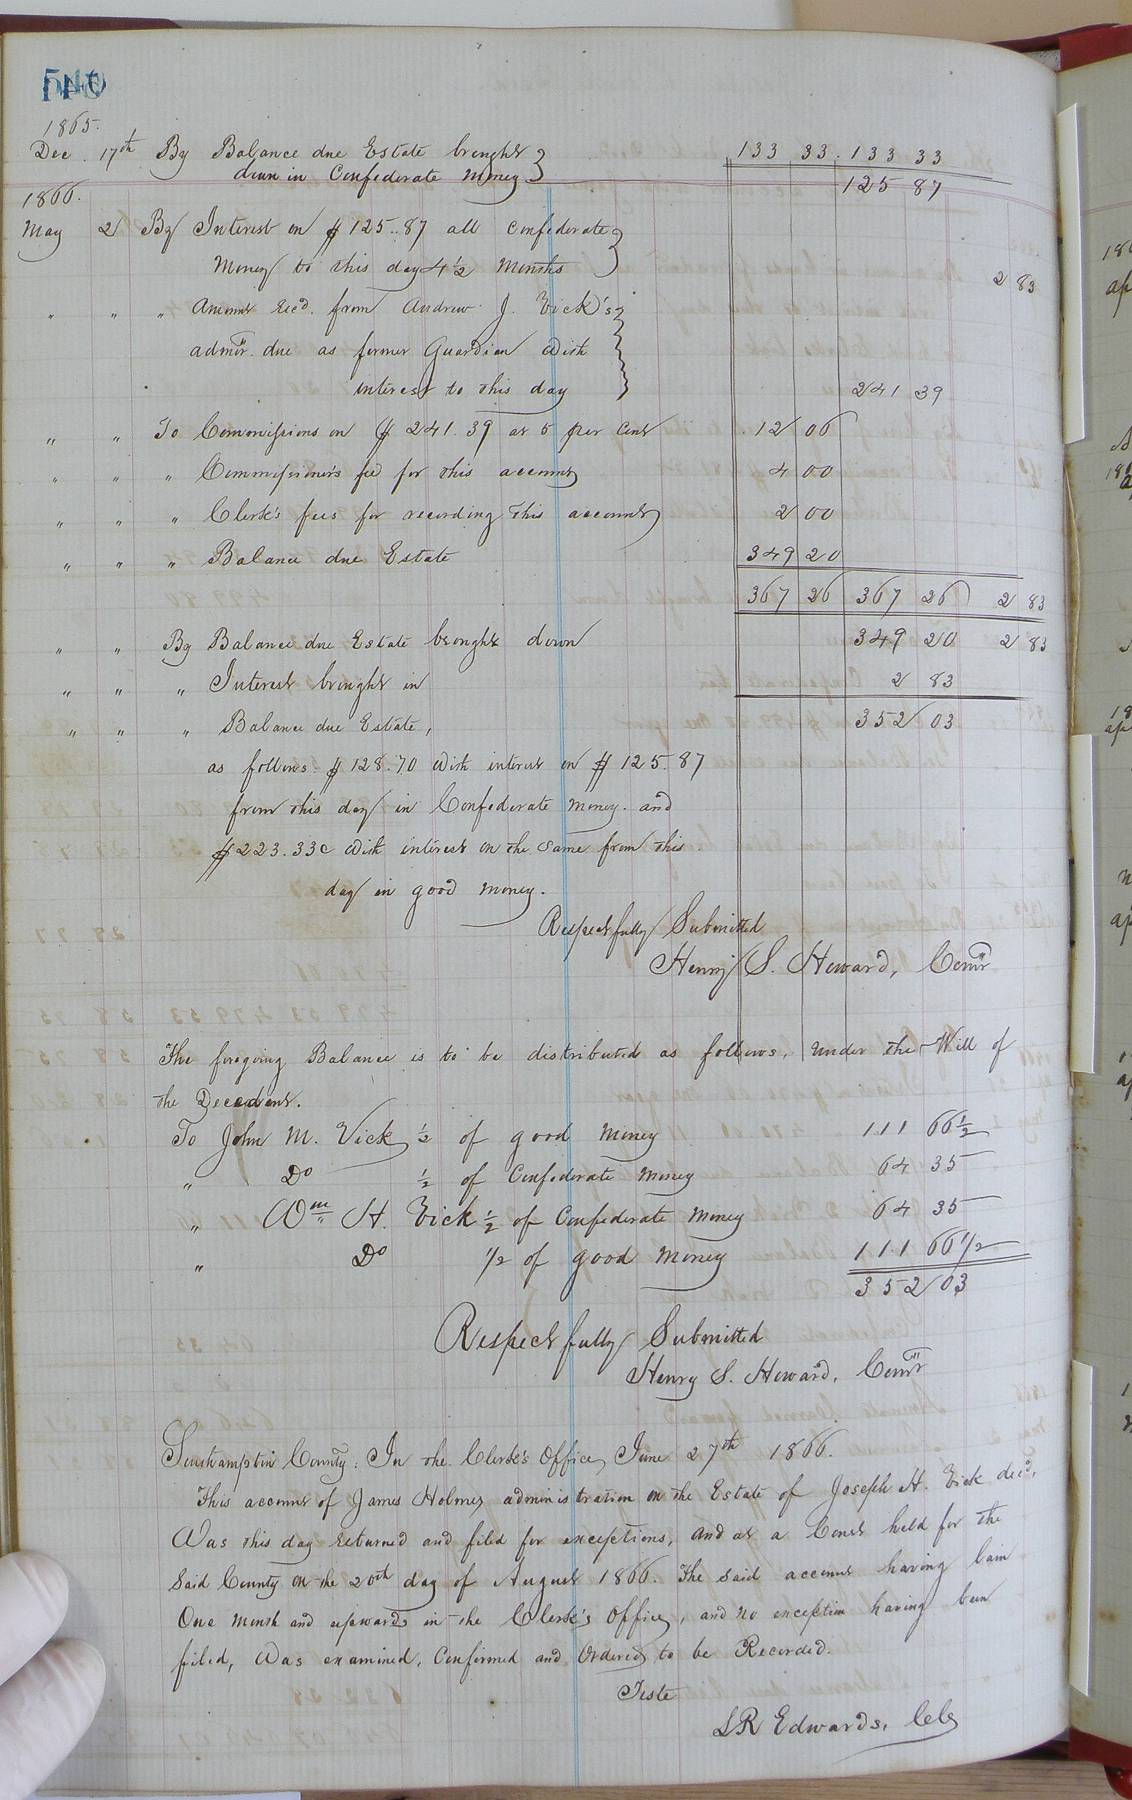 540
1865.
Dec. 17th By Balance due Estate brought 133 33. 133 33
down in Confederate Money 125 87
1866.
May 2 By Interest on $125..87 all Confederate
Money to this day 4½ Months 2 83
" " " Amount Recd. from Andrew J. Vick's
admor. due as former Guardian with
interest to this day 241 39
" " To Commissions on $241.39 at 5 per Cent 12 06
" " " Commissioner's fee for this account 4 00
" " " Clerk's fees for recording this account 2 00
" " " Balance due Estate 349 20
367 26 367 26 2 83
" " By Balance due Estate brought down 349 20 2 83
" " " Interest brought in 2 83
" " " Balance due Estate, 352 03
as follows $128.70 with interest on $125.87
from this day in Confederate Money. and
$223.33c with interest on the same from this
day in good Money.
Respectfully Submitted
Henry S. Howard, Comr
The foregoing Balance is to be distributed as follows, under the Will of
the Decedent.
To John M. Vick ½ of good Money 111 66½
" Do ½ of Confederate Money 64 35
" Wm H. Vick ½ of Confederate Money 64 35
" Do 1/2 of good Money 111 66 1/2
352 03
Respectfully Submitted
Henry S. Howard, Comr
Southampton County: In the Clerk's Office, June 27th 1866.
This account of James Holmes administration on the Estate of Joseph H. Vick decd.
Was this day returned and filed for exceptions, and at a Court held for the
Said County on the 20th day of August 1866. The said account having lain
One month and upwards in the Clerk's Office, and no exception having been
filed, Was examined, Confirmed and Ordered to be Recorded.
Teste
LR Edwards, CClk